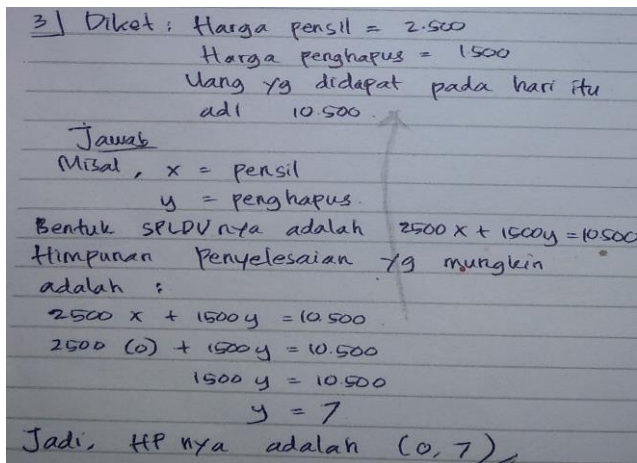 3] Diket : Harga pensil = 2.500
Harga penghapus = 1500
Uang yg didapat pada hari itu
adl 10.500.
Jawab
Misal, x = pensil
y = penghapus.
Bentuk SPLDVnya adalah 2500 x + 1500y = 10500
Himpunan Penyelesaian yg mungkin
adalah :
2500 x + 1500y = 10.500
2500 (0) + 1500y = 10.500
1500 y = 10.500
y = 7
Jadi, HP nya adalah (0,7)